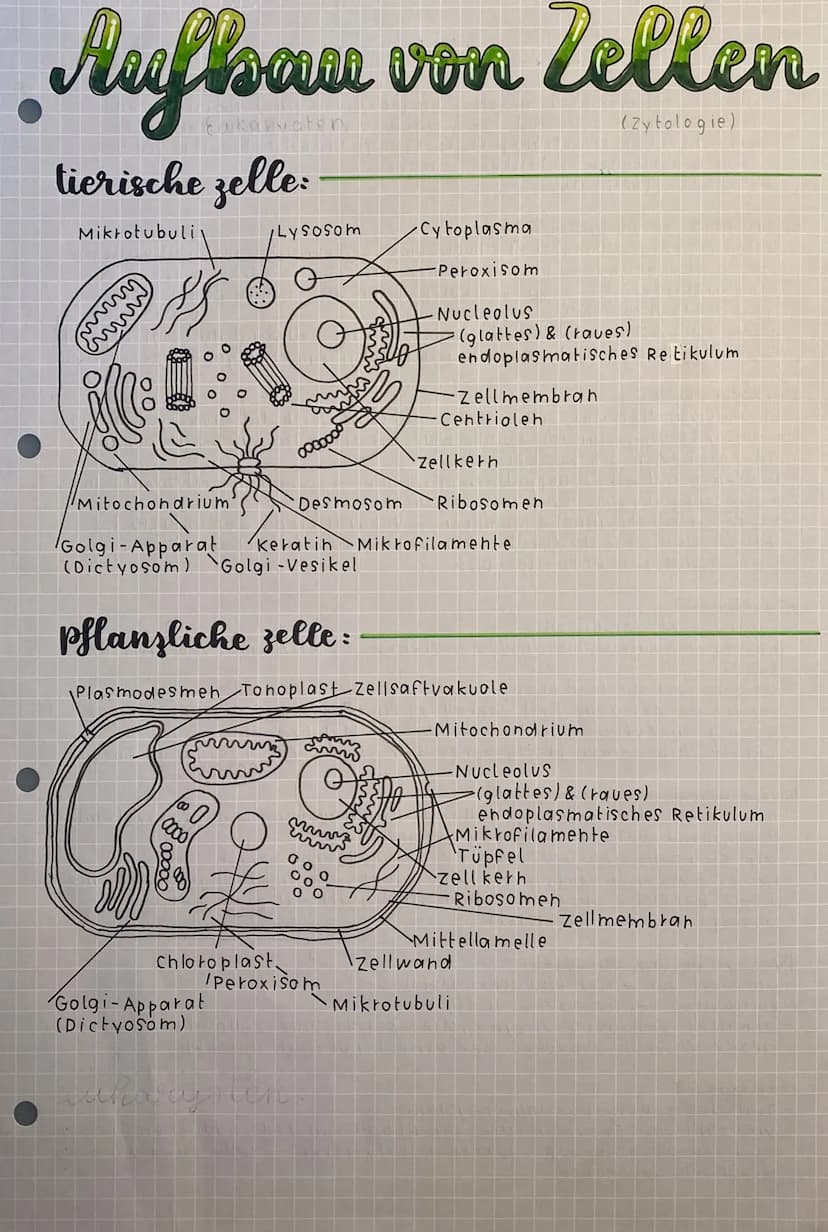 Aufbau von Zellen
Eukaryoten
(Zytologie)
tierische zelle:
Mikrotubuli
Lysosom
Cytoplasma
Peroxisom
Nucleolus
(glattes) & (raues)
endoplasmatisches Retikulum
Zellmembran
Centriolen
Zellkern
Mitochondrium
Desmosom
Ribosomen
Golgi-Apparat
Keratin
Mikrofilamente
(Dictyosom)
Golgi-Vesikel
pflanzliche zelle:
Plasmodesmen
Tonoplast
Zellsaftvakuole
Mitochondrium
Nucleolus
(glattes) & (raues)
endoplasmatisches Retikulum
Mikrofilamente
Tüpfel
Zellkern
Ribosomen
Zellmembran
Mittellamelle
Chloroplast
Zellwand
Peroxisom
Golgi-Apparat
Mikrotubuli
(Dictyosom)